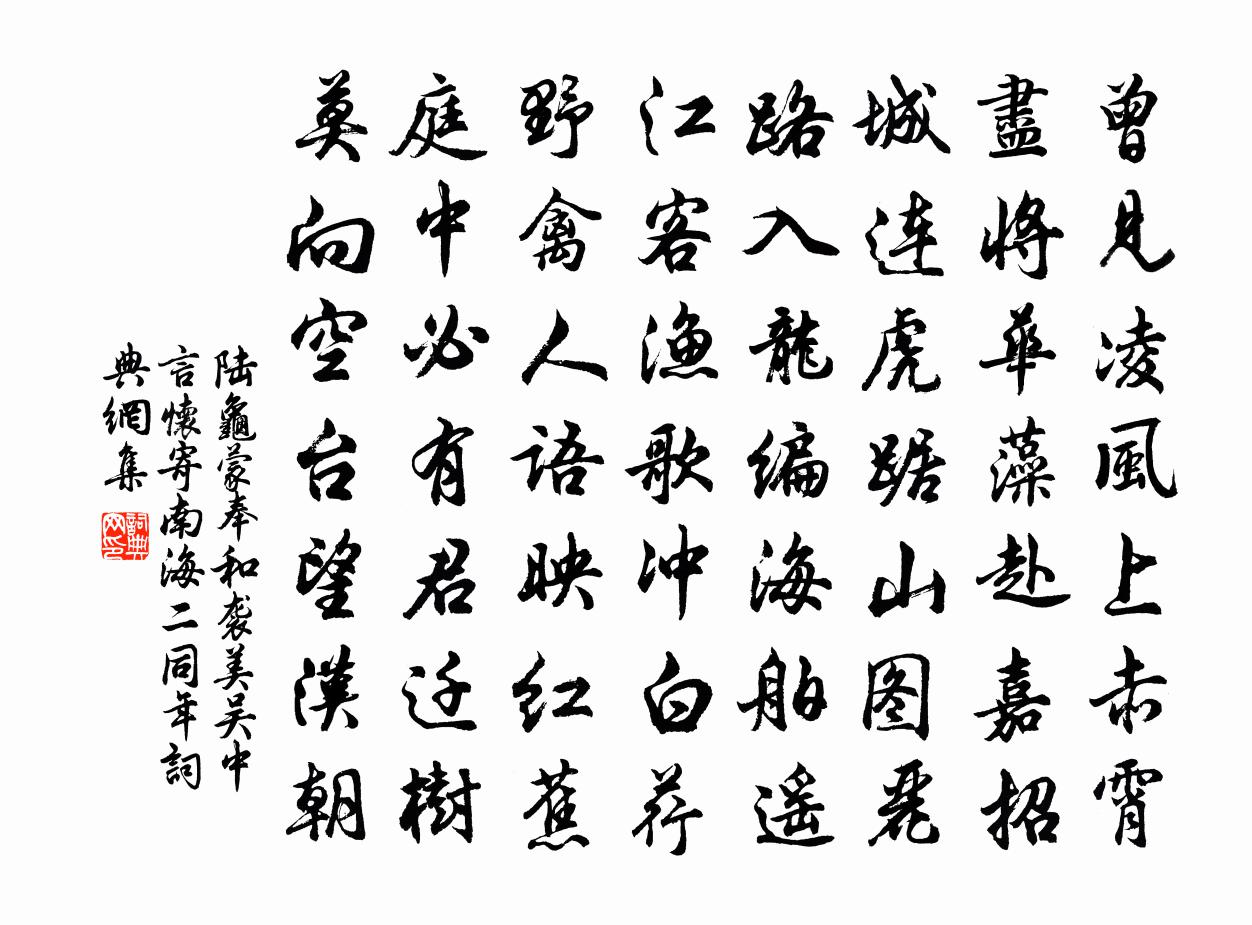 曾見凌風上赤霄
盡將華藻赴嘉招
城連虎踞山图麗
路入龍编海舶遥
江客漁歌冲白荇
野禽人語映红蕉
庭中必有君迁樹
莫向空台望漢朝
陆龜蒙奉和袭美吴中
言懷寄南海二同年詞
典網集
詞典
网印